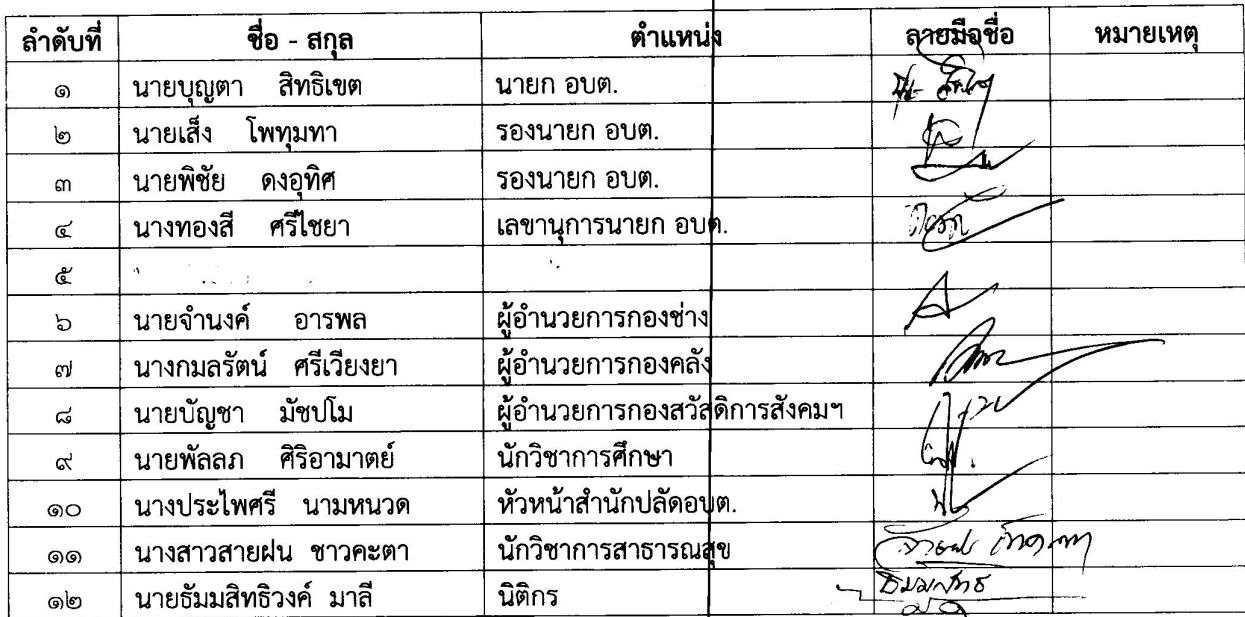 ลำดับที่ ชื่อ - สกุล ตำแหน่ง ลายมือชื่อ หมายเหตุ
๑ นายบุญตา สิทธิเขต นายก อบต.
๒ นายเส็ง โพทุมทา รองนายก อบต.
๓ นายพิชัย ดงอุทิศ รองนายก อบต.
๔ นางทองสี ศรีไชยา เลขานุการนายก อบต.
๕
๖ นายจำนงค์ อารพล ผู้อำนวยการกองช่าง
๗ นางกมลรัตน์ ศรีเวียงยา ผู้อำนวยการกองคลัง
๘ นายบัญชา มัชปโม ผู้อำนวยการกองสวัสดิการสังคมฯ
๙ นายพัลลภ ศิริอามาตย์ นักวิชาการศึกษา
๑๐ นางประไพศรี นามหนวด หัวหน้าสำนักปลัดอบต.
๑๑ นางสาวสายฝน ชาวคะตา นักวิชาการสาธารณสุข
๑๒ นายธัมมสิทธิวงค์ มาลี นิติกร